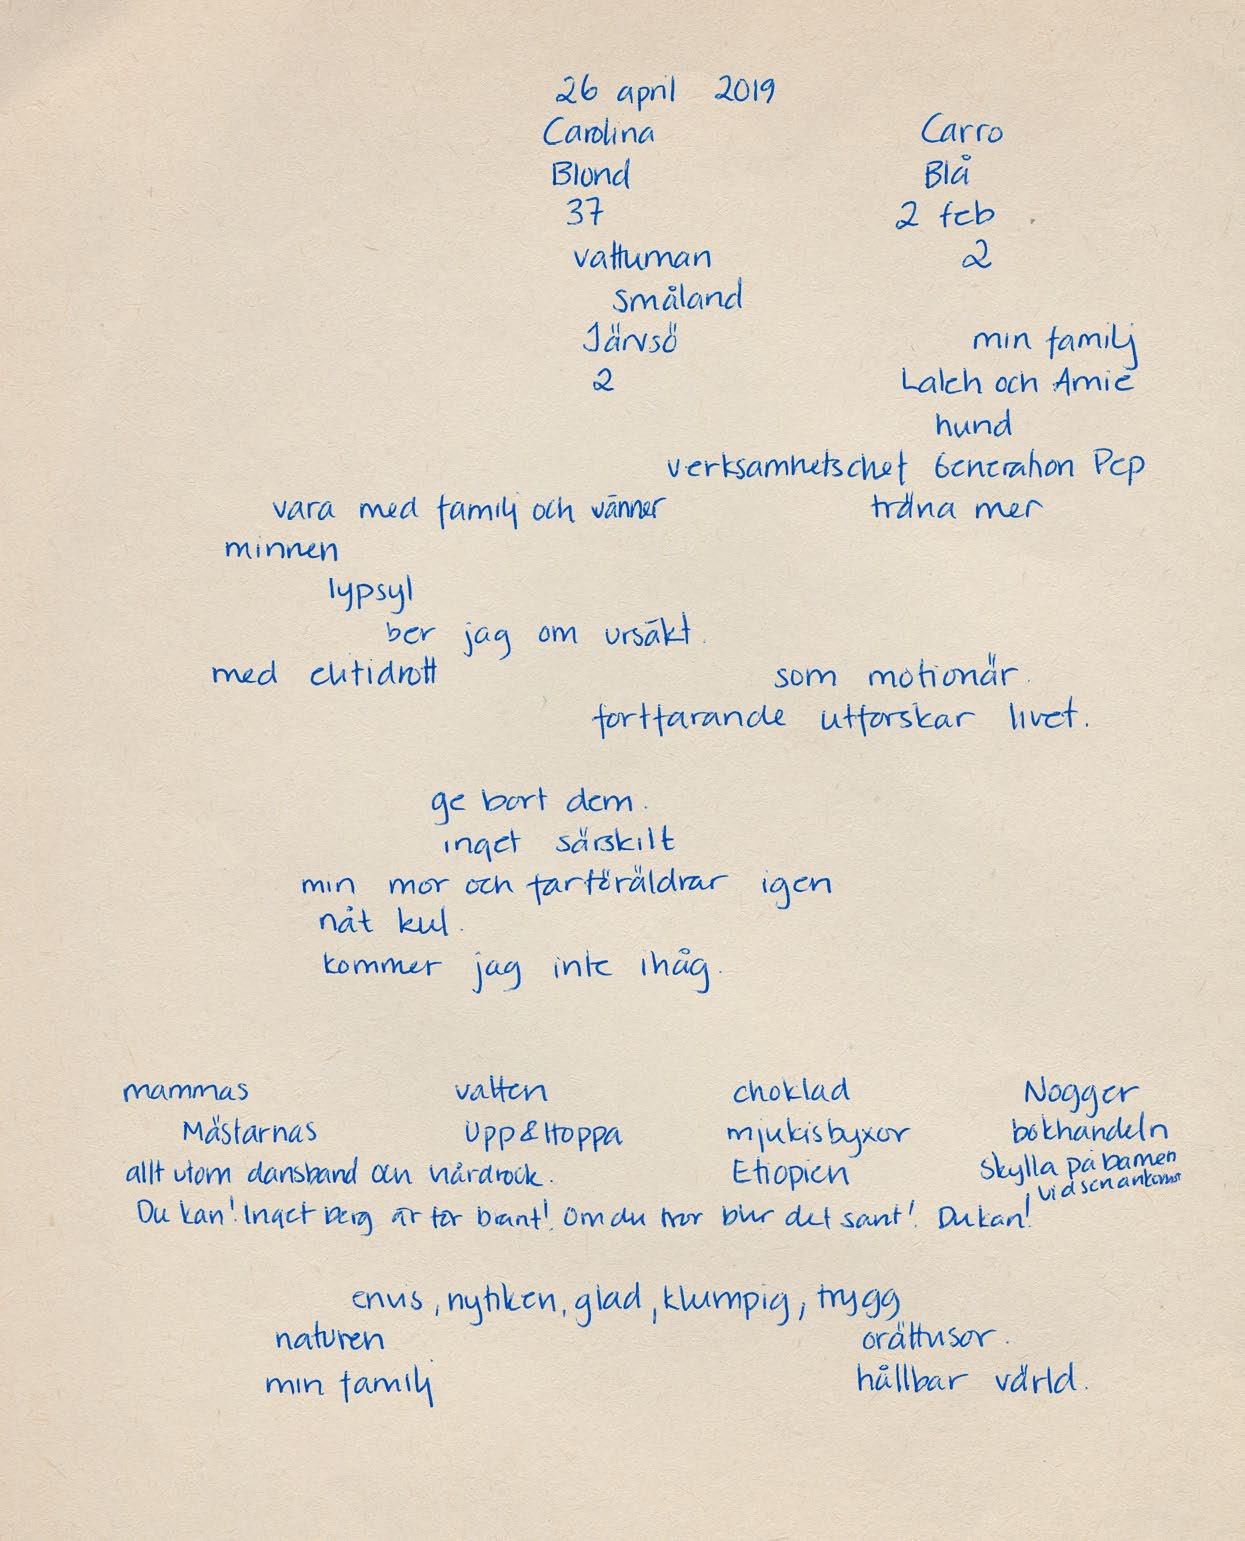 26 april 2019
Carolina Carro
Blond Blå
37 2 feb
vattuman 2
småland
Järvsö min familj
2 Laleh och Amie
hund
verksamhetschef Generation Pep
vara med familj och vänner träna mer
minnen
lypsyl
ber jag om ursäkt.
med elitidrott som motionär.
fortfarande utforskar livet.
ge bort dem.
inget särskilt
min mor och farföräldrar igen
nåt kul.
kommer jag inte ihåg.
mammas vatten choklad Nogger
Mästarnas Upp&Hoppa mjukisbyxor bokhandeln
allt utom dansband och hårdrock. Etiopien skylla på barnen
vid sen ankomst
Du kan! Inget berg är för brant! Om du tror blir det sant! Du kan!
envis, nyfiken, glad, klumpig, trygg
naturen orättvisor.
min familj hållbar värld.